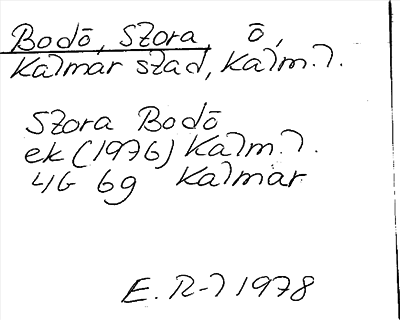 Bodō, Szora ō,
Kalmar stad, Kalm. l.
Szora Bodō
ek (1976) Kalm. l.
4G 6g Kalmar
E. R-l 1978